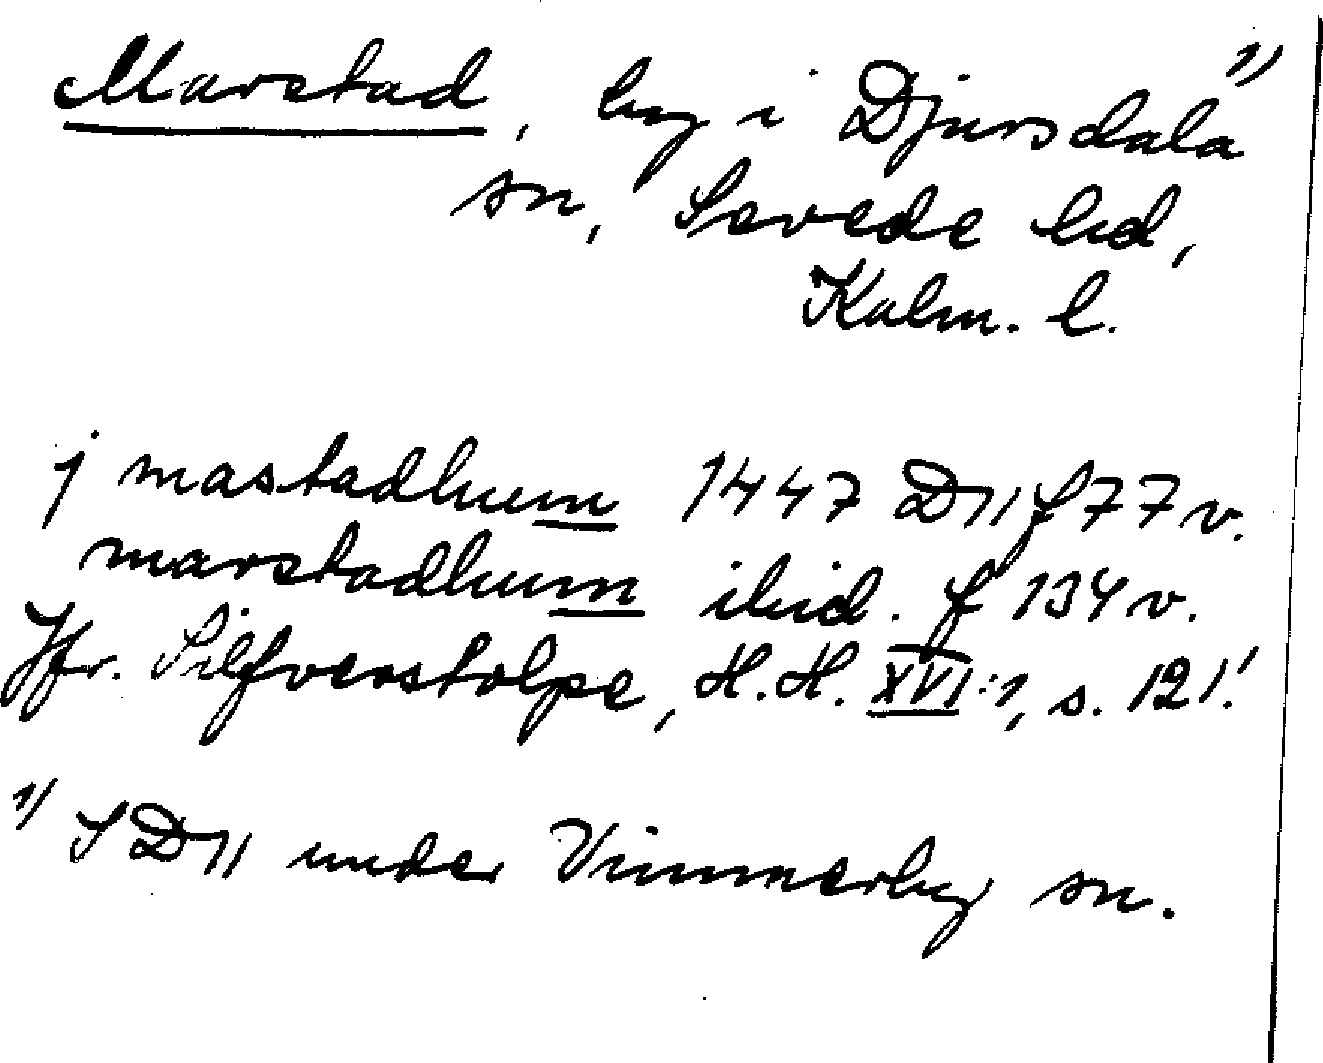 Marstad, by i Djursdala 1)
sn, Sevede hd,
Kalm. l.
j mastadhum 1447 D 11 f 77 v.
marstadhum ibid. f 134 v.
Jfr. Silfverstolpe, H.H. XVI:1, s. 121!
1) I D 11 under Vimmerby sn.